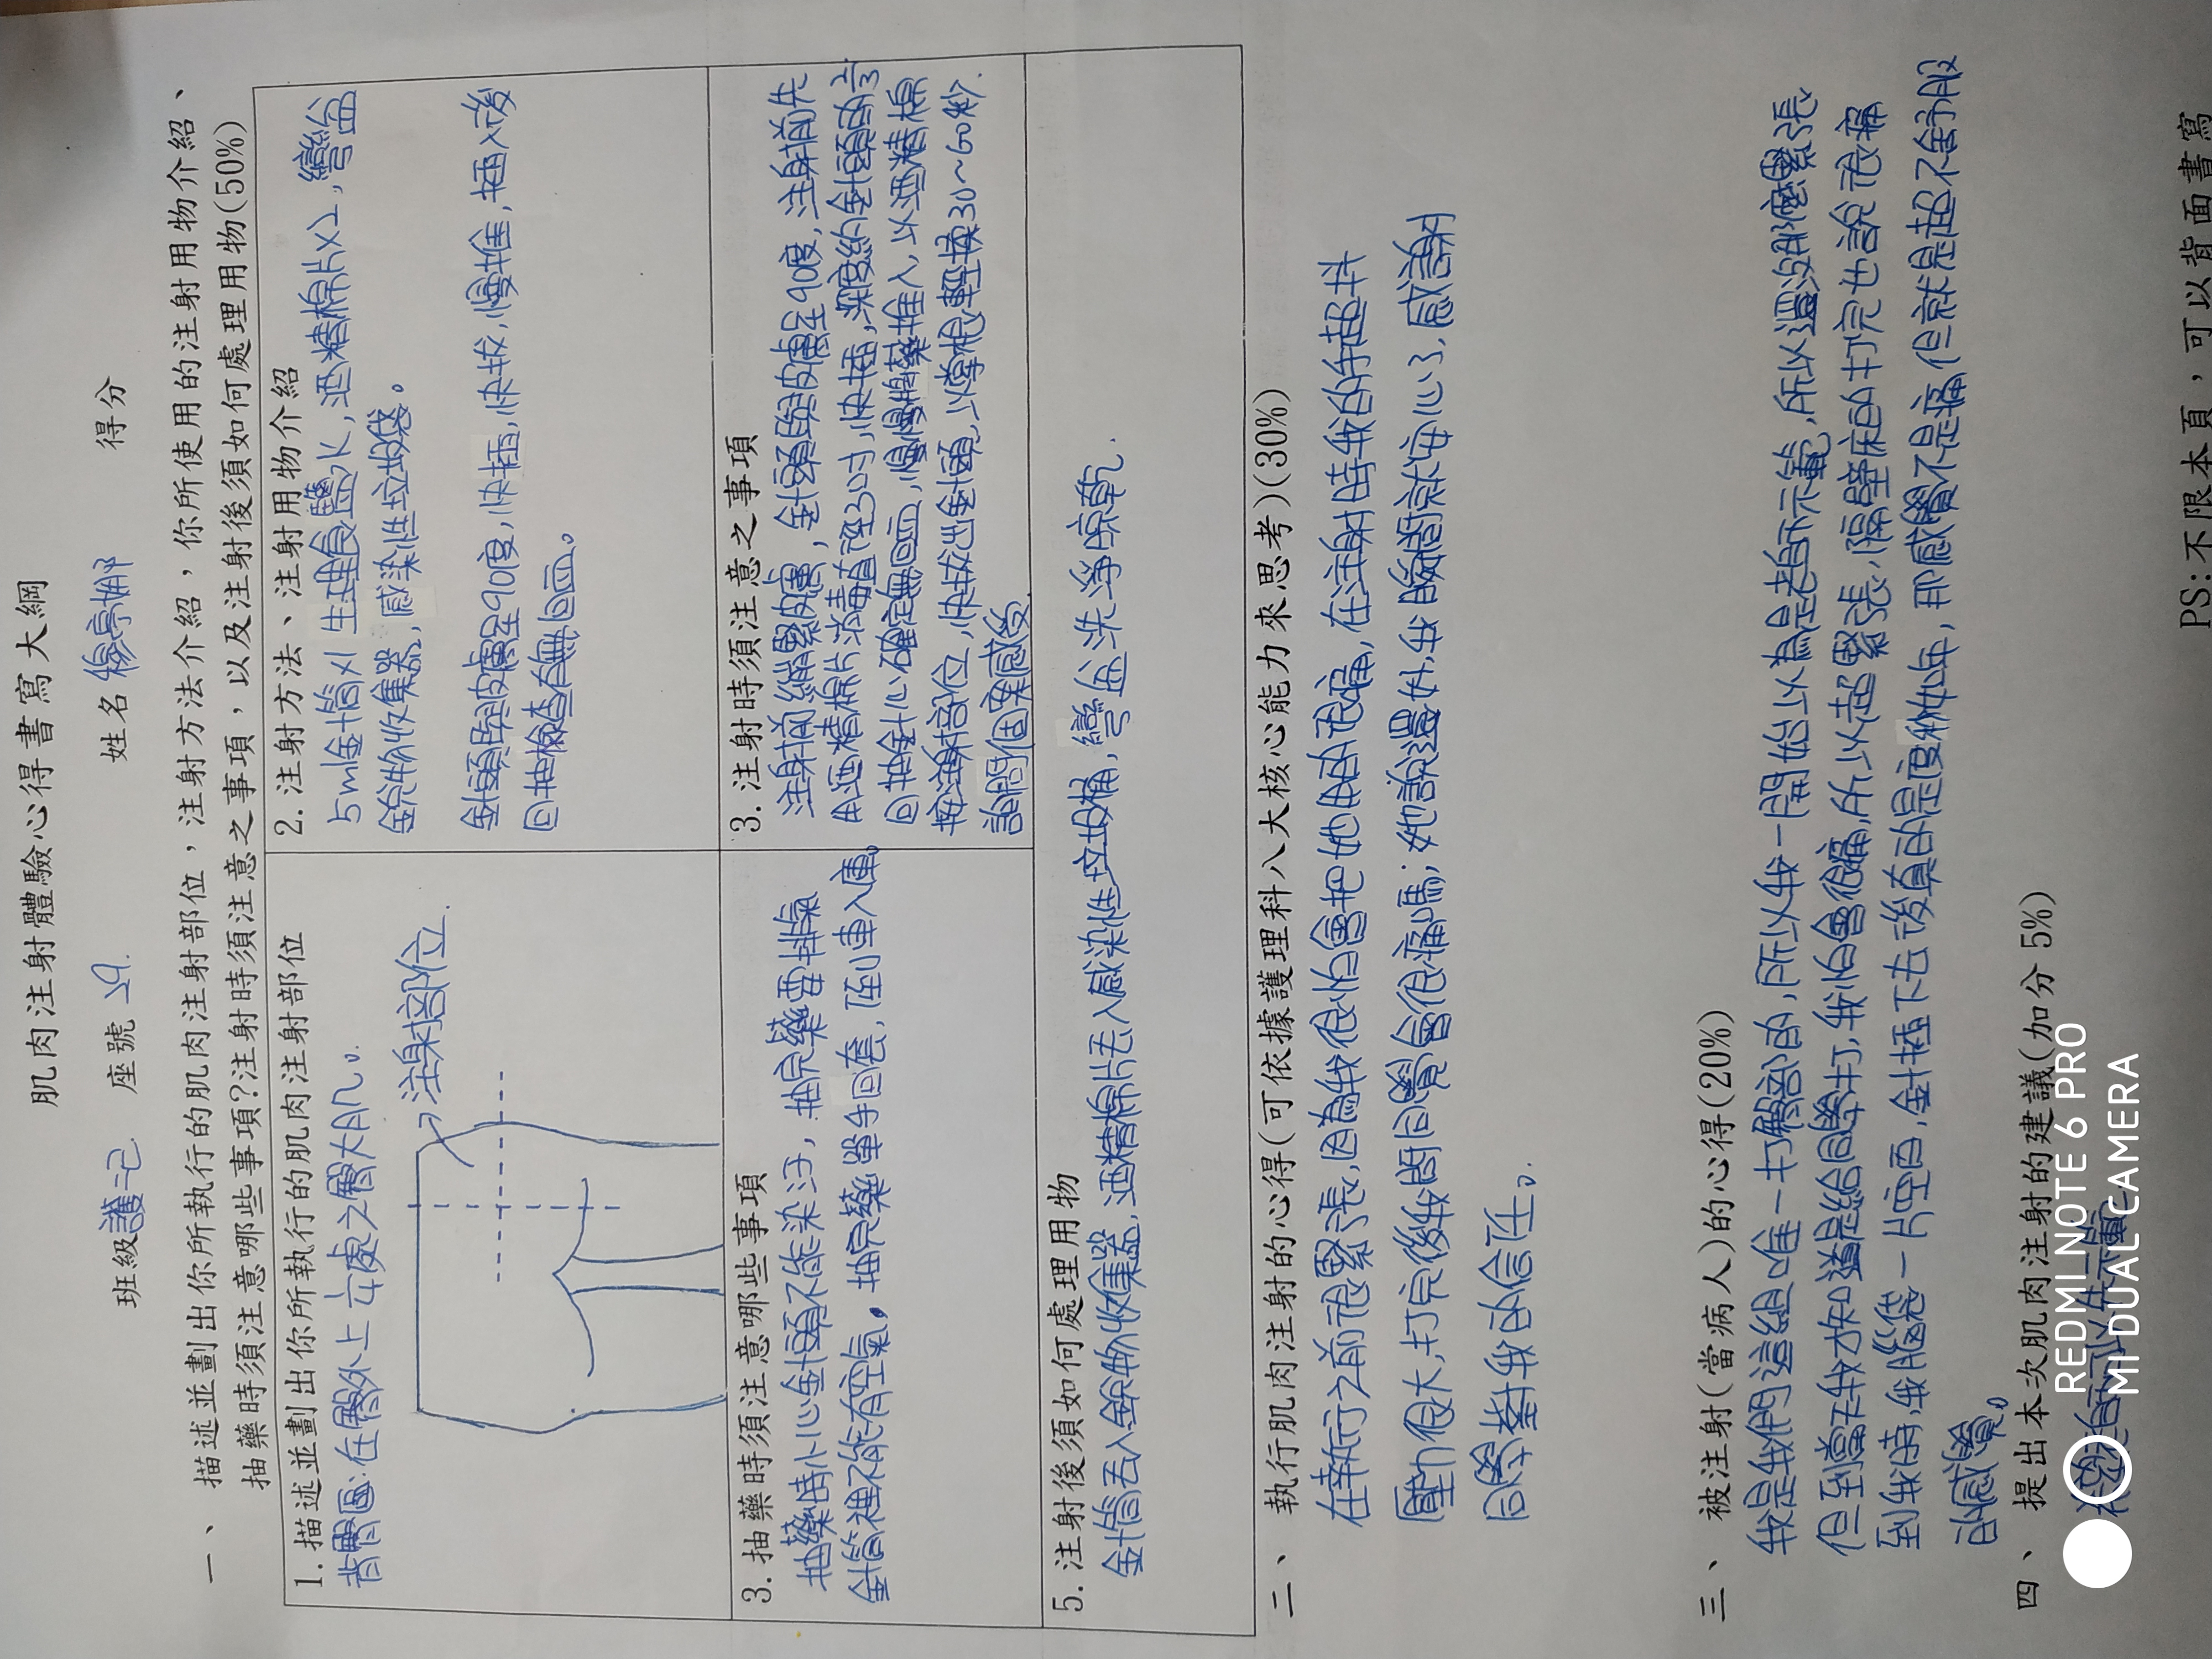 肌肉注射體驗心得書寫大綱
班級護二己 座號 29. 姓名 亭娜 得分
一、 描述並劃出你所執行的肌肉注射部位，注射方法介紹，你所使用的注射用物介紹、
抽藥時須注意哪些事項?注射時須注意之事項，以及注射後須如何處理用物(50%)
1.描述並劃出你所執行的肌肉注射部位
背臀區:在臀外上 處之臀大肌。
注射部位.
2.注射方法、注射用物介紹
5ml針筒x1 生理食鹽水,酒精棉片x2,彎盆
銳物收集器,感染性垃圾袋。
針頭與皮膚呈90度,快插,快拔,慢推,插入後
回抽檢查無回血。
3.抽藥時須注意哪些事項
抽藥時小心針頭不能染汙,抽完藥要排氣
針筒裡不能有空氣。抽完藥單手回套,到車入庫。
3.注射時須注意之事項
注射前繃緊皮膚,針頭與皮膚呈90度,注射前先
用酒精棉片消毒直徑3吋,快插,深度約針頭的2/3
回抽針心確定無回血,慢慢將藥推入,以酒精棉
按注射部位,快拔出針頭,以拇指輕揉30~60秒.
詢問個案感受.
5.注射後須如何處理用物
針筒丟入銳物收集器,酒精棉片丟入感染性垃圾桶,彎盆洗淨晾乾.
二、 執行肌肉注射的心得(可依據護理科八大核心能力來思考)(30%)
在執行之前很緊張,因為我很怕會把她用的很痛,在注射時我的手超抖
壓力很大,打完後我問同學會很痛嗎;她說還好,我瞬間就安心了,感謝
同學對我的信任。
三、 被注射(當病人)的心得(20%)
我是我們這組唯一打臀部的,所以我一開始以為是老師示範,所以還沒那麼緊張
但到當下我才知道是給同學打,我怕會很痛,所以超緊張,隔壁床的打完也說很痛
到我時,我腦袋一片空白,針插下去後真的是度秒如年,那感覺不是痛但就是超不舒服
的感覺。
四、 提出本次肌肉注射的建議(加分 5%)
PS:不限本頁，可以背面書寫
REDMI NOTE 6 PRO
MI DUAL CAMERA